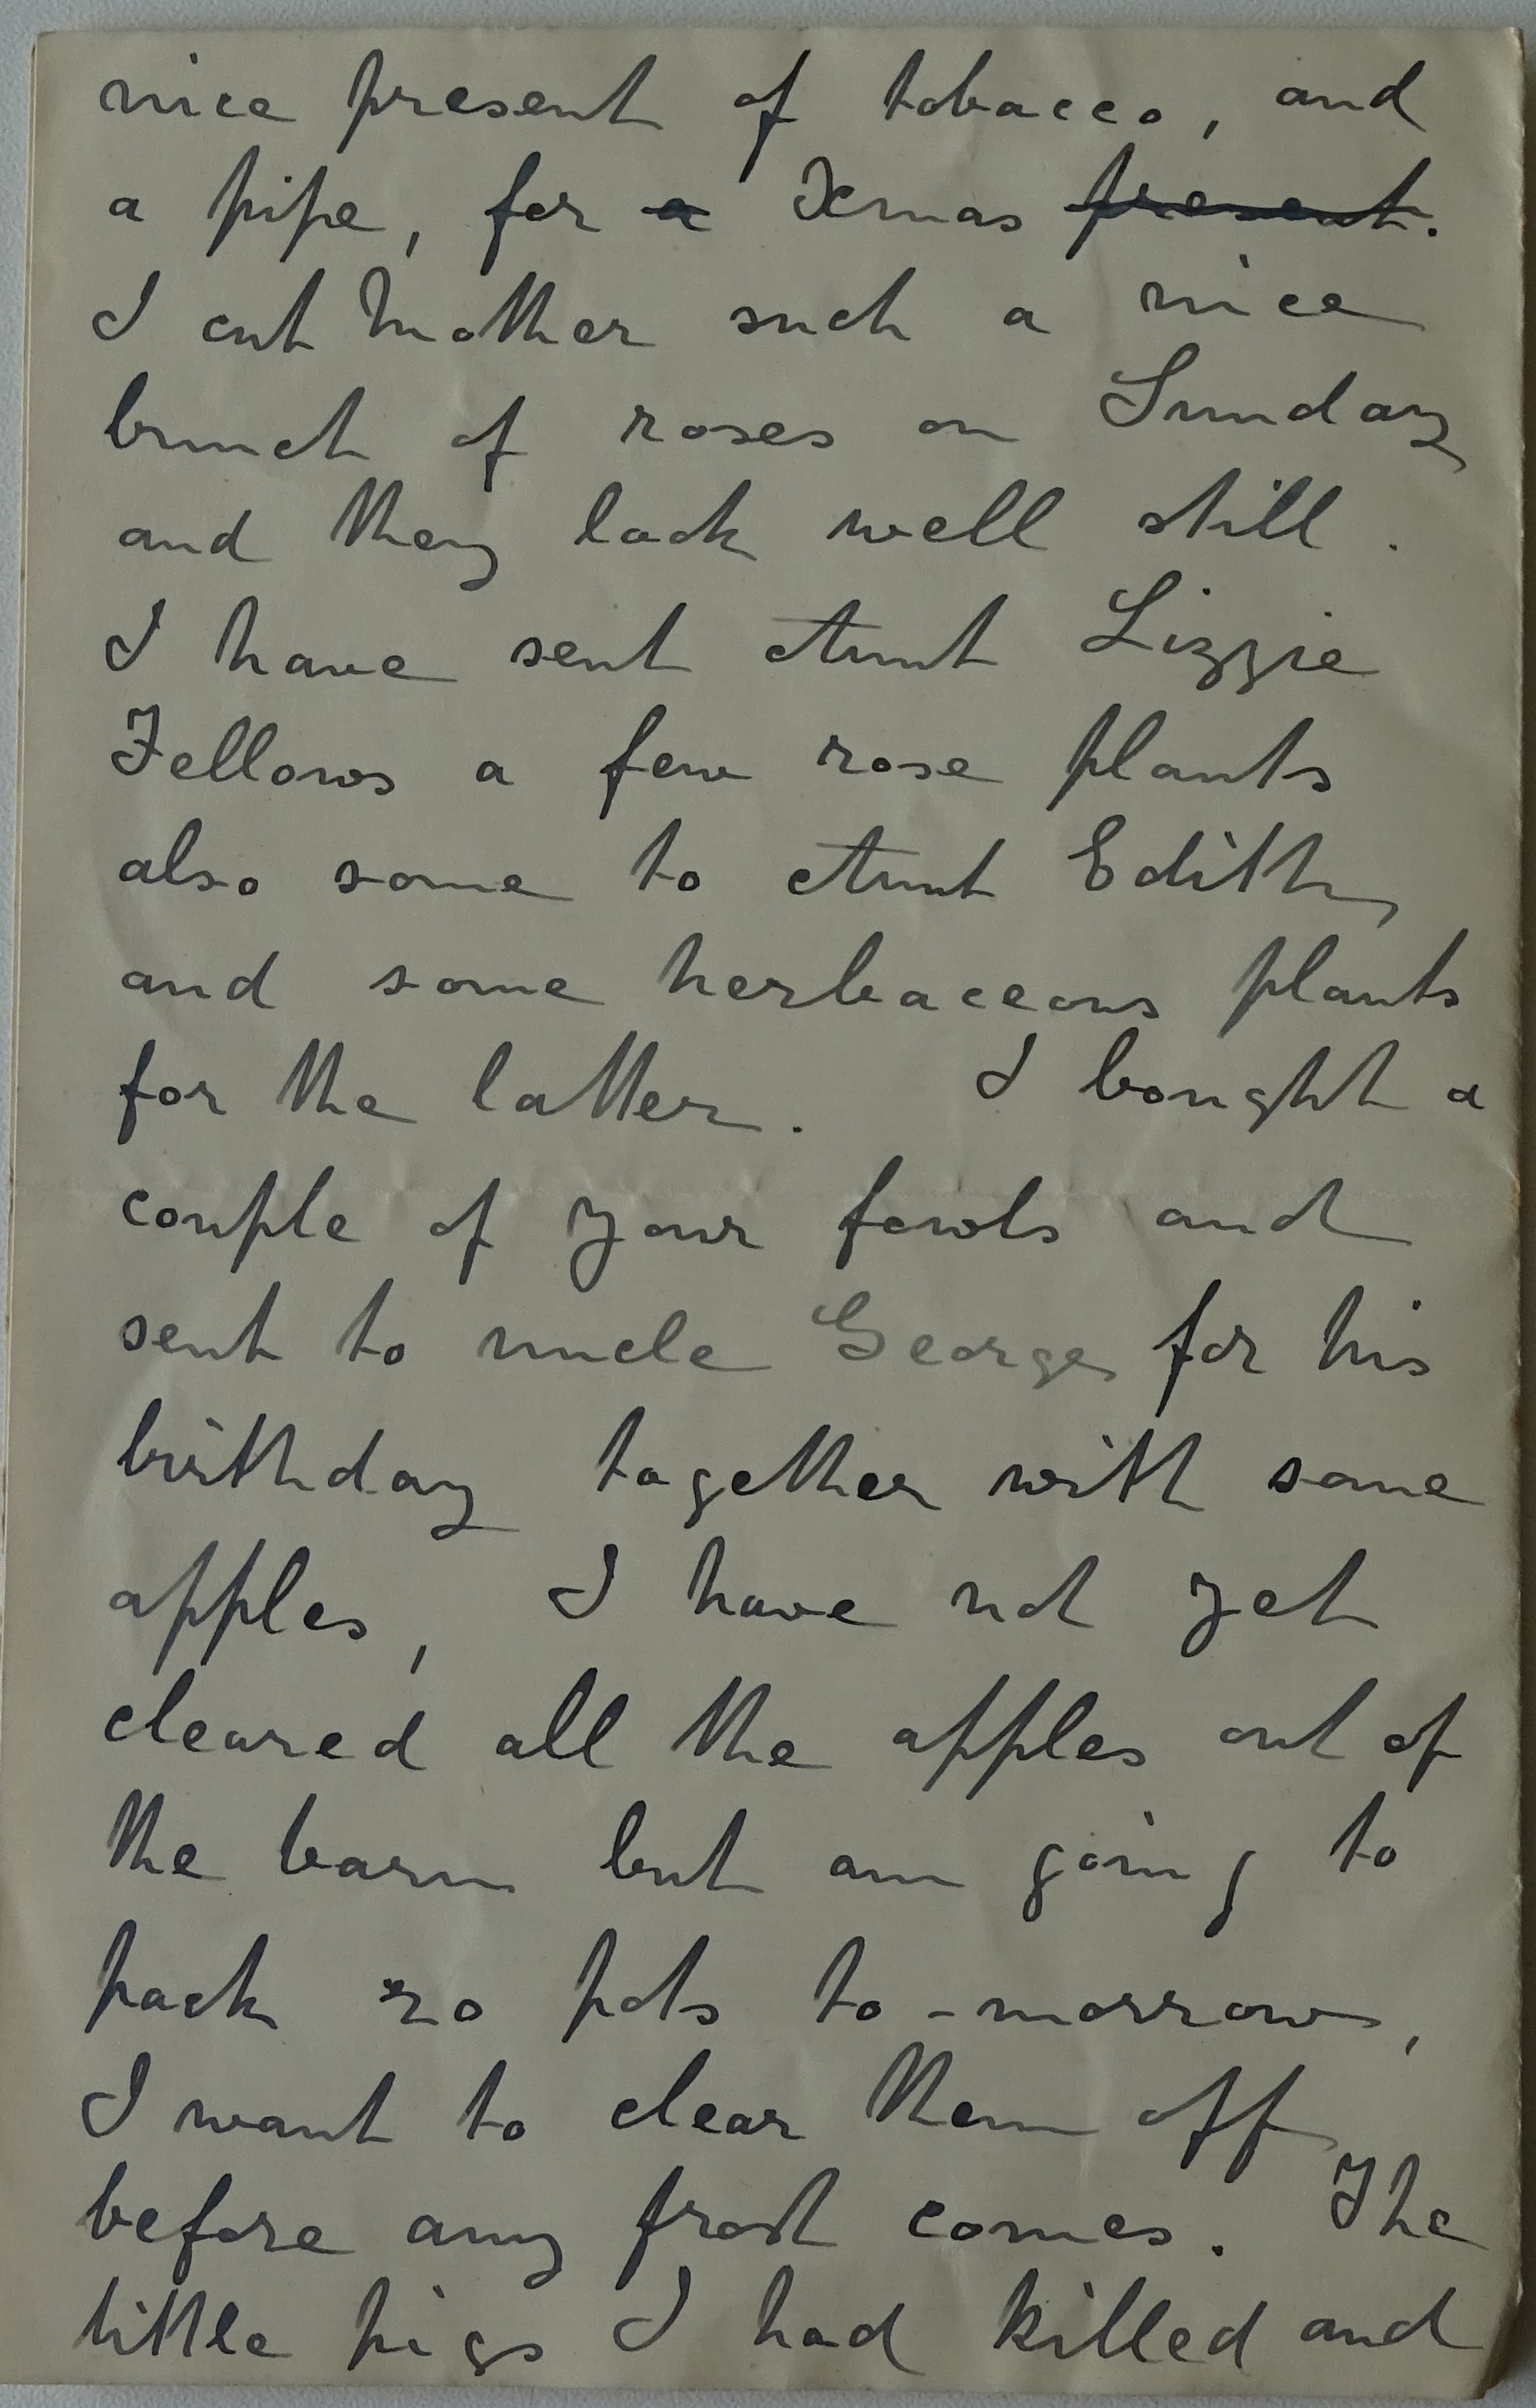 nice present of tobacco, and
a pipe, for a Xmas present.
I cut Mother such a nice
bunch of roses on Sunday
and they look well still.
I have sent Aunt Lizzie
Fellows a few rose plants
also some to Aunt Edith,
and some herbaceous plants
for the latter. I bought a
couple of your fowls and
sent to uncle George for his
birthday together with some
apples, I have not yet
cleared all the apples out of
the barn but am going to
pack 20 pots to-morrow,
I want to clear them off
before any frost comes. The
little pigs I had killed and